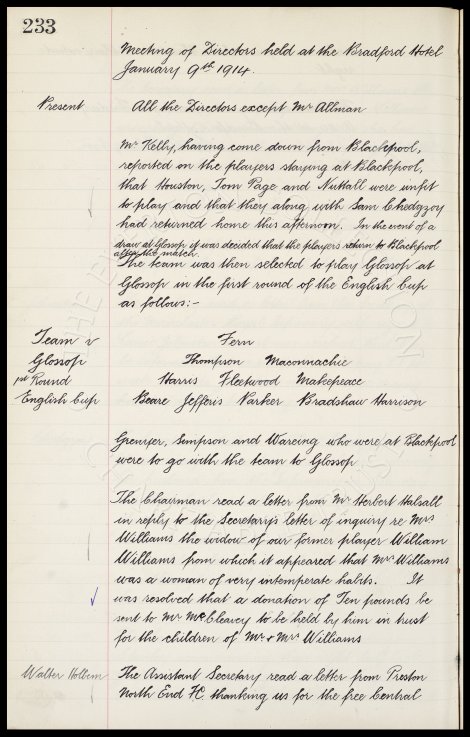 233
Meeting of Directors held at the Bradford Hotel
January 9th 1914.
Present
All the Directors except Mr Allman
Mr Kelly, having come down from Blackpool,
reported on the players staying at Blackpool,
that Houston, Tom Page and Nuttall were unfit
to play and that they along with Sam Chedgzoy
had returned home this afternoon. In the event of a
draw at Glossop it was decided that the players return to Blackpool
after the match.
The team was then selected to play Glossop at
Glossop in the first round of the English Cup
as follows:-
Team v
Glossop
1st Round
English Cup
Fern
Thompson Maconnachie
Harris Fleetwood Makepeace
Beare Jefferis Parker Bradshaw Harrison
Grenyer, Simpson and Wareing who were at Blackpool
were to go with the team to Glossop
The Chairman read a letter from Mr Herbert Halsall
in reply to the Secretary's letter of inquiry re Mrs
Williams the widow of our former player William
Williams from which it appeared that Mrs Williams
was a woman of very intemperate habits. It
was resolved that a donation of Ten pounds be
sent to Mr McCleavey to be held by him in trust
for the children of Mr & Mrs Williams
Walter Holbem
The Assistant Secretary read a letter from Preston
North End FC. thanking us for the free Central